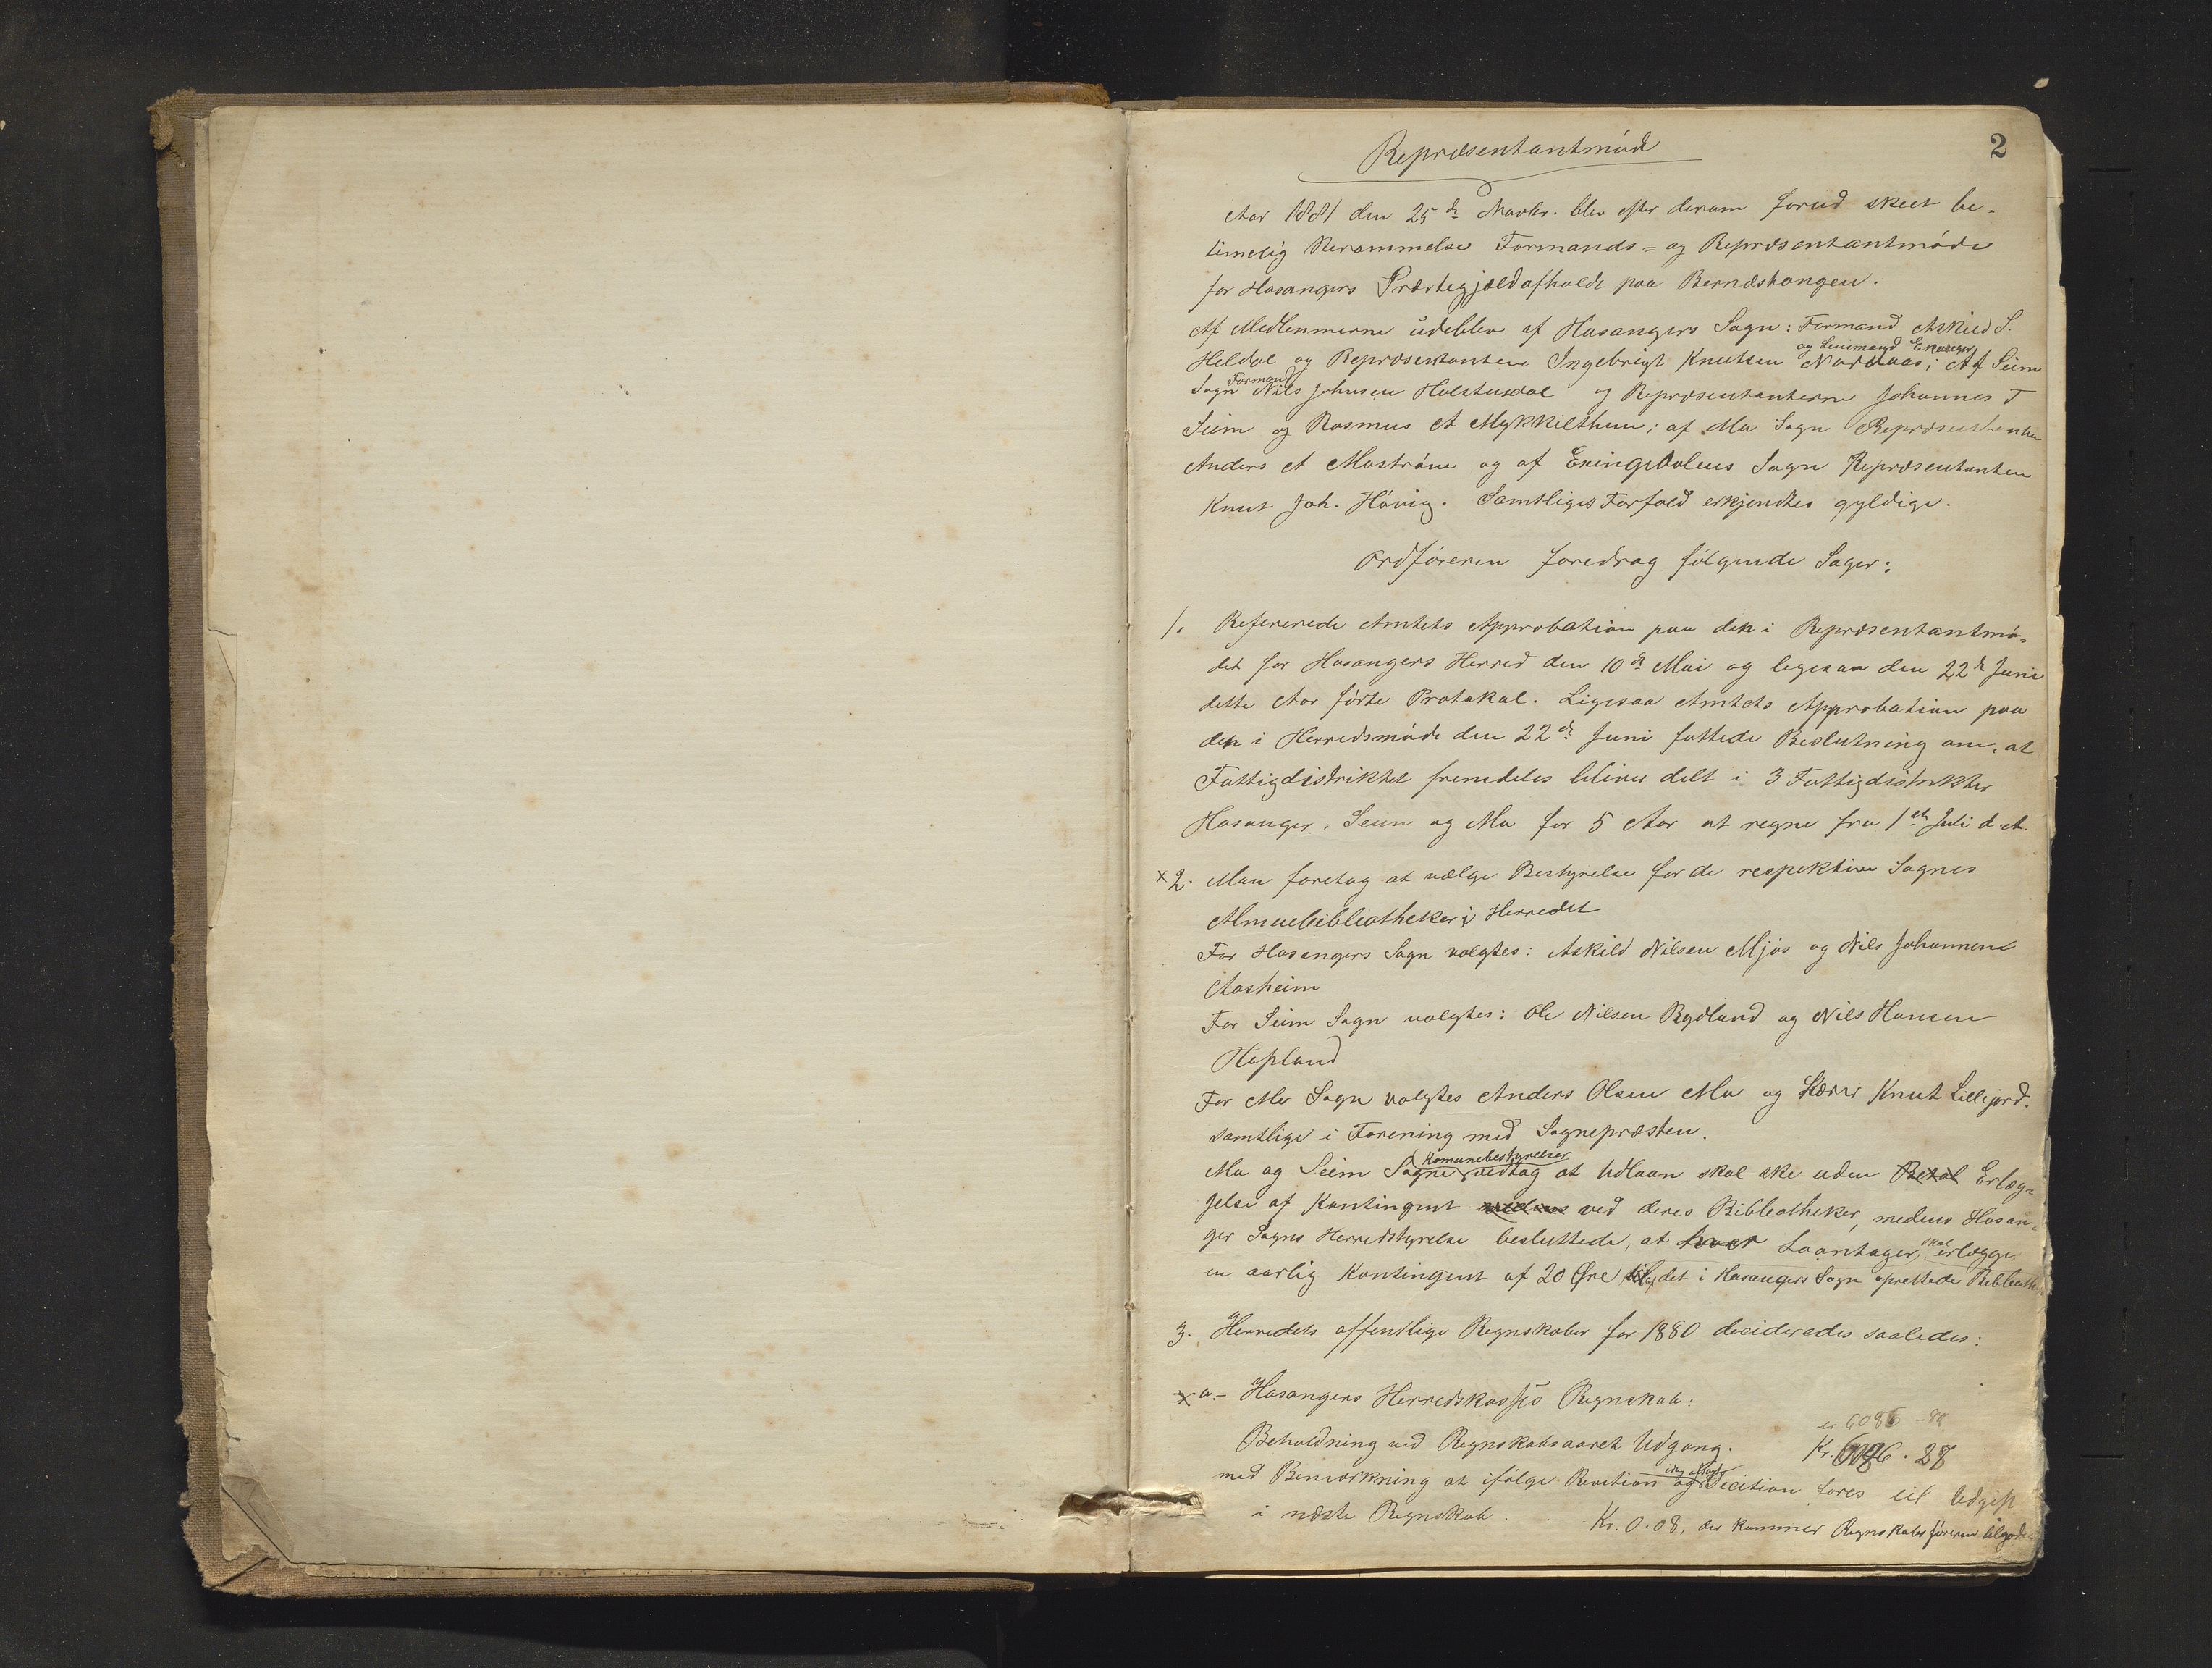 2
Repræsentantmøde
Aar 1881 den 25de Novbr. blev efter derom forud skeet be-
timelig Berammelse Formands- og Repræsentantmøde
for Hosangers Præstegjæld afholdt paa Bernæstangen.
Af Medlemmerne udeblev af Hosangers Sogn: Formand Askild S.
og Lensmand Eknæs
Heldal og Repræsentanten Ingebrigt Knutsen Nordaas; Af Seim
Formand
Sogn Nils Johnsen Helstusdal og Repræsentanterne Johannes T
Seim og Rasmus A Mykkilthun; af Mo Sogn Repræsentanten
Anders A Mostrøne og af Exingedalens Sogn Repræsentanten
Knut Joh. Høvig. Samtliges Forfald erkjendtes gyldige.
Ordføreren foredrog følgende Sager:
1. Refererede Amtets Approbation paa den i Repræsentantmø-
det for Hosangers Herred den 10de Mai og ligesaa den 22de Juni
dette Aar førte Protokol. Ligesaa Amtets Approbation paa
den i Herredsmøde den 22de Juni fattede Beslutning om, at
Fattigdistriktet fremdeles bliver delt i 3 Fattigdistrikter
Hosanger, Seim og Mo for 5 Aar at regne fra 1ste Juli d. A.
x 2. Man foretog at vælge Bestyrelse for de respektive Sognes
Almuebibliotheker i Herredet
For Hosangers Sogn valgtes: Askild Nilsen Mjøs og Nils Johannesen
Aasheim
For Seim Sogn valgtes: Ole Nilsen Rydland og Nils Hansen
Hopland
For Mo Sogn valgtes Anders Olsen Mo og Lærer Knut Lillejord.
samtlige i Forening med Sognepræsten.
Komunebestyrelser
Mo og Seim Sogne vedtog at Udlaan skal ske uden Betal Erlæg-
gelse af Kontingent ved deres Bibliotheker, medens Hosan-
ger Sogns Herredstyrelse besluttede, at hver Laantager skal erlægge
en aarlig Kontingent af 20 Øre til det i Hosangers Sogn oprettede Biblioth
3. Herredets offentlige Regnskaber for 1880 decideredes saaledes:
x a.- Hosangers Herredskasses Regnskab:
er 6086 - 88
Beholdning ved Regnskabsaarets Udgang. Kr. 6086. 28
med Bemærkning at ifølge Revition og Decition føres til Udgift
i næste Regnskab. Kr. 0.08, der kommer Regnskabsføreren tilgode.